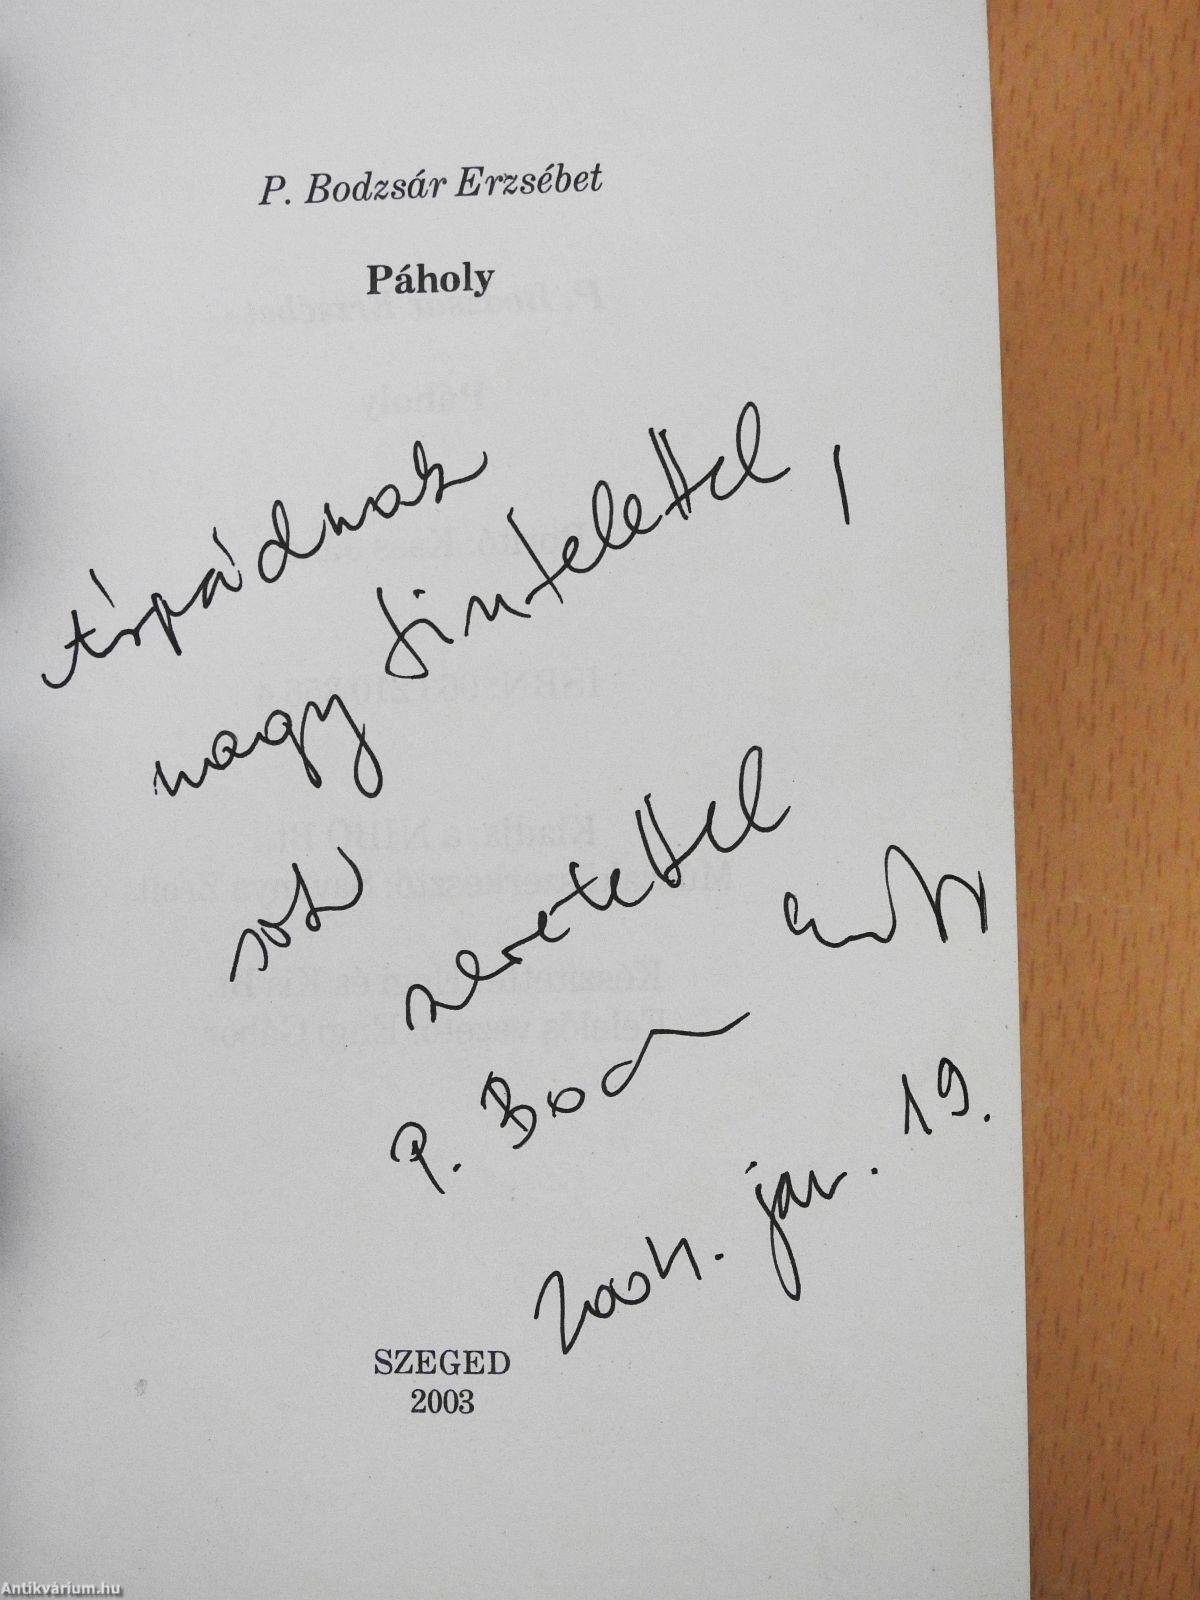 P. Bodzsár Erzsébet
Páholy
Árpádnak
nagy tisztelettel,
sok szeretettel
P. Bod
2004. jan. 19.
SZEGED
2003
Antikvárium.hu